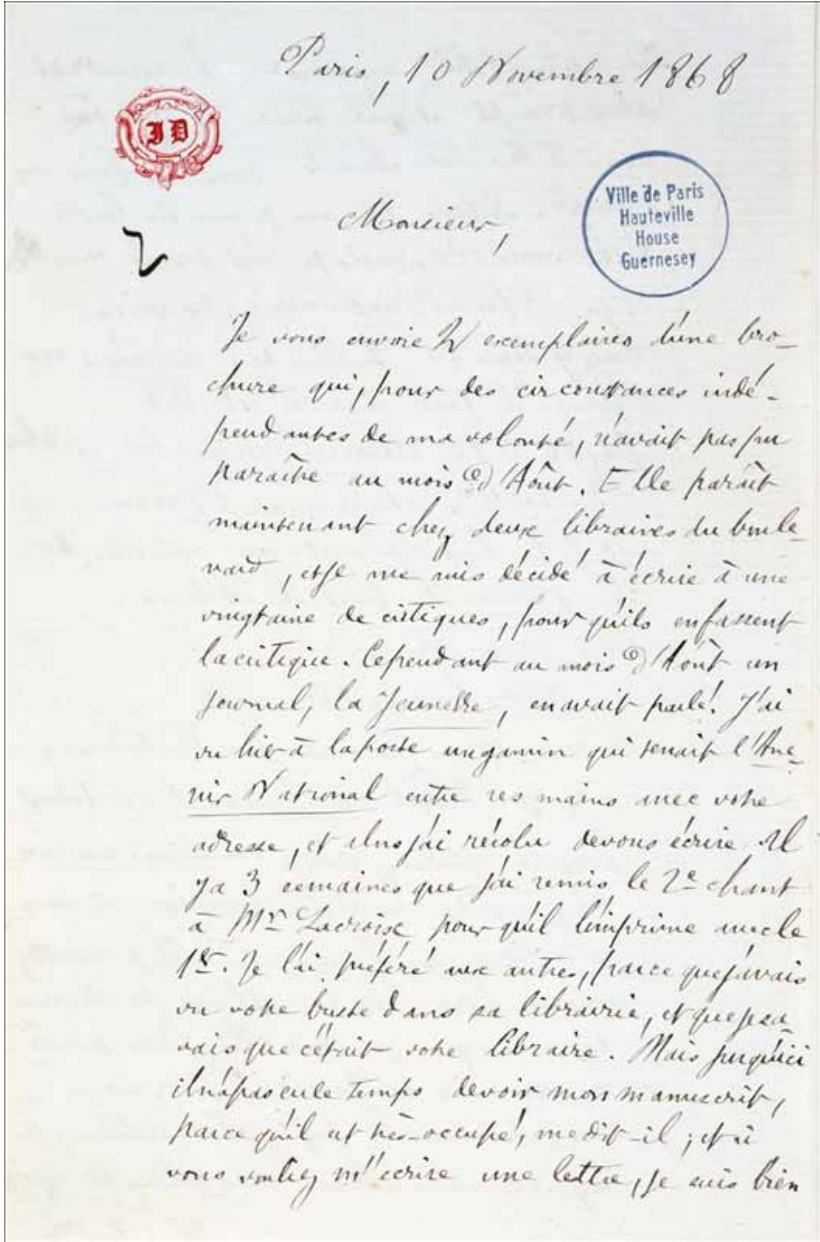 Paris, 10 Novembre 1868
ID
Ville de Paris
Hauteville
House
Guernesey
Monsieur,
Je vous envoie 2 exemplaires d'une bro-
chure qui, pour des circonstances indé-
pendantes de ma volonté, n'avait pas pu
paraître au mois d'Août. Elle paraît
maintenant chez deux libraires du boule-
vard, et je me suis décidé à écrire à une
vingtaine de critiques, pour qu'ils en fassent
la critique. Cependant au mois d'Août un
journal, la Jeunesse, en avait parlé! J'ai
vu hier à la poste un gamin qui tenait l'Ave-
nir National entre ses mains avec votre
adresse, et alors j'ai résolu de vous écrire. Il
y a 3 semaines que j'ai remis le 2e chant
à Mr Lacroix pour qu'il l'imprime avec le
1er. Je l'ai préféré aux autres, parce que j'avais
vu votre buste dans sa librairie, et que je sa-
vais que c'était votre libraire. Mais jusqu'ici
il n'a pas eu le temps de voir mon manuscrit,
parce qu'il est très-occupé, me dit-il; et si
vous vouliez m'écrire une lettre, je suis bien